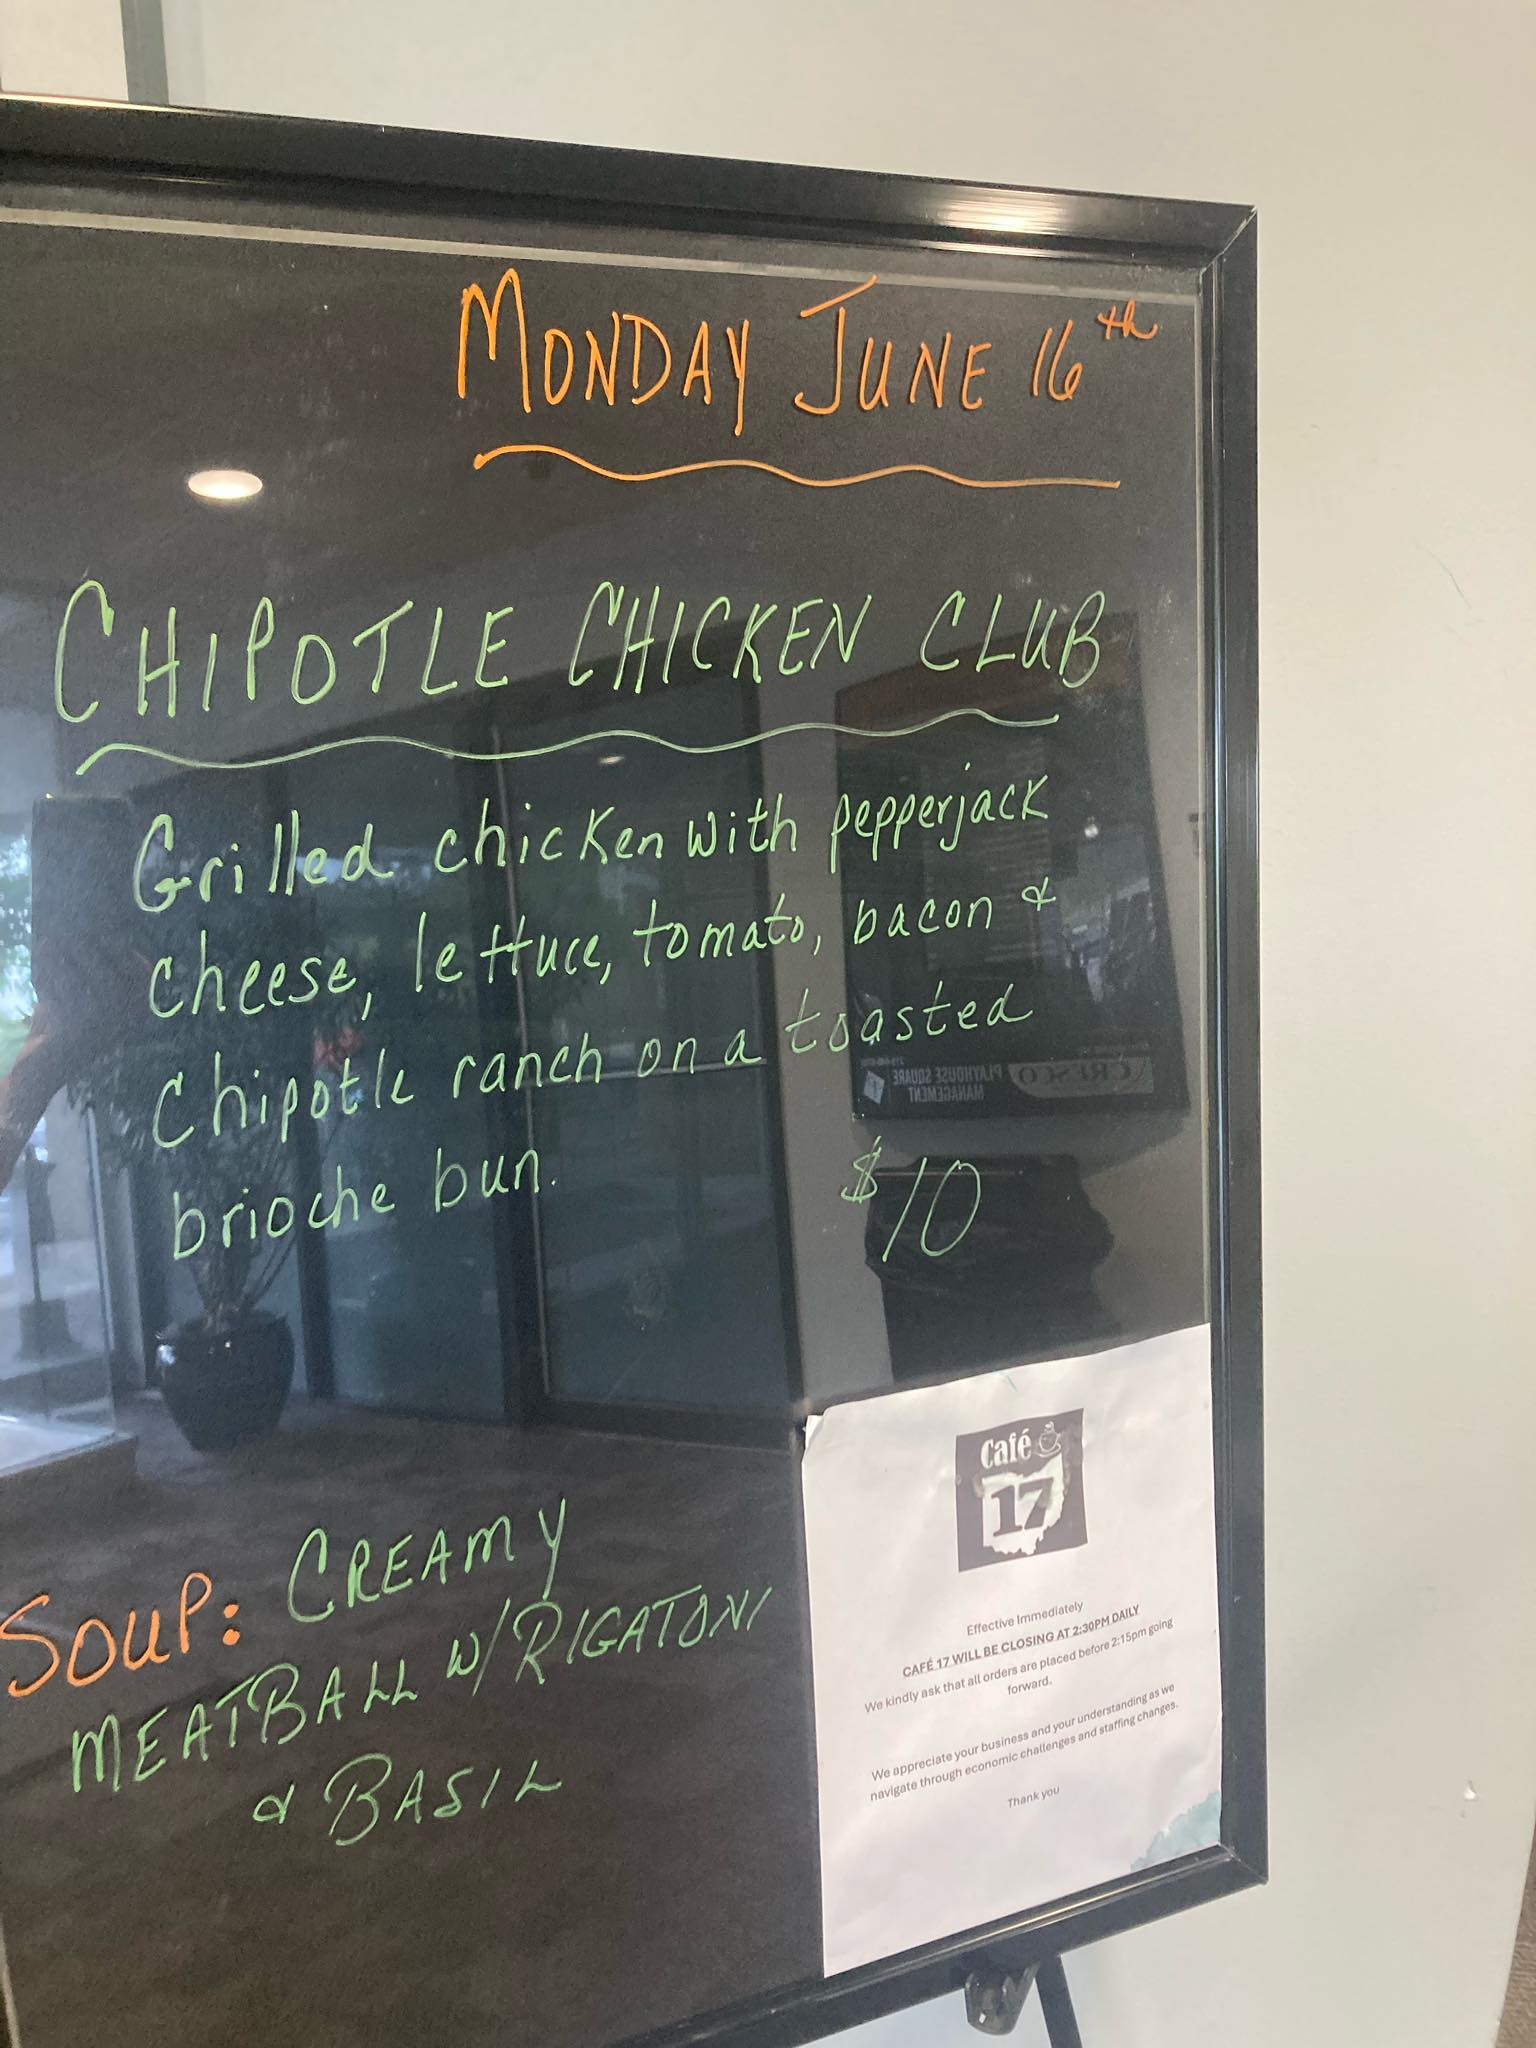 MONDAY JUNE 16th
CHIPOTLE CHICKEN CLUB
Grilled chicken with pepperjack
cheese, lettuce, tomato, bacon &
Chipotle ranch on a toasted
brioche bun.
$10
SOUP: CREAMY
MEATBALL W/ RIGATONI
& BASIL
Café
17
Effective Immediately
CAFÉ 17 WILL BE CLOSING AT 2:30PM DAILY
We kindly ask that all orders are placed before 2:15pm going
forward.
We appreciate your business and your understanding as we
navigate through economic challenges and staffing changes.
Thank you
CRESCO
PLAYHOUSE SQUARE
MANAGEMENT